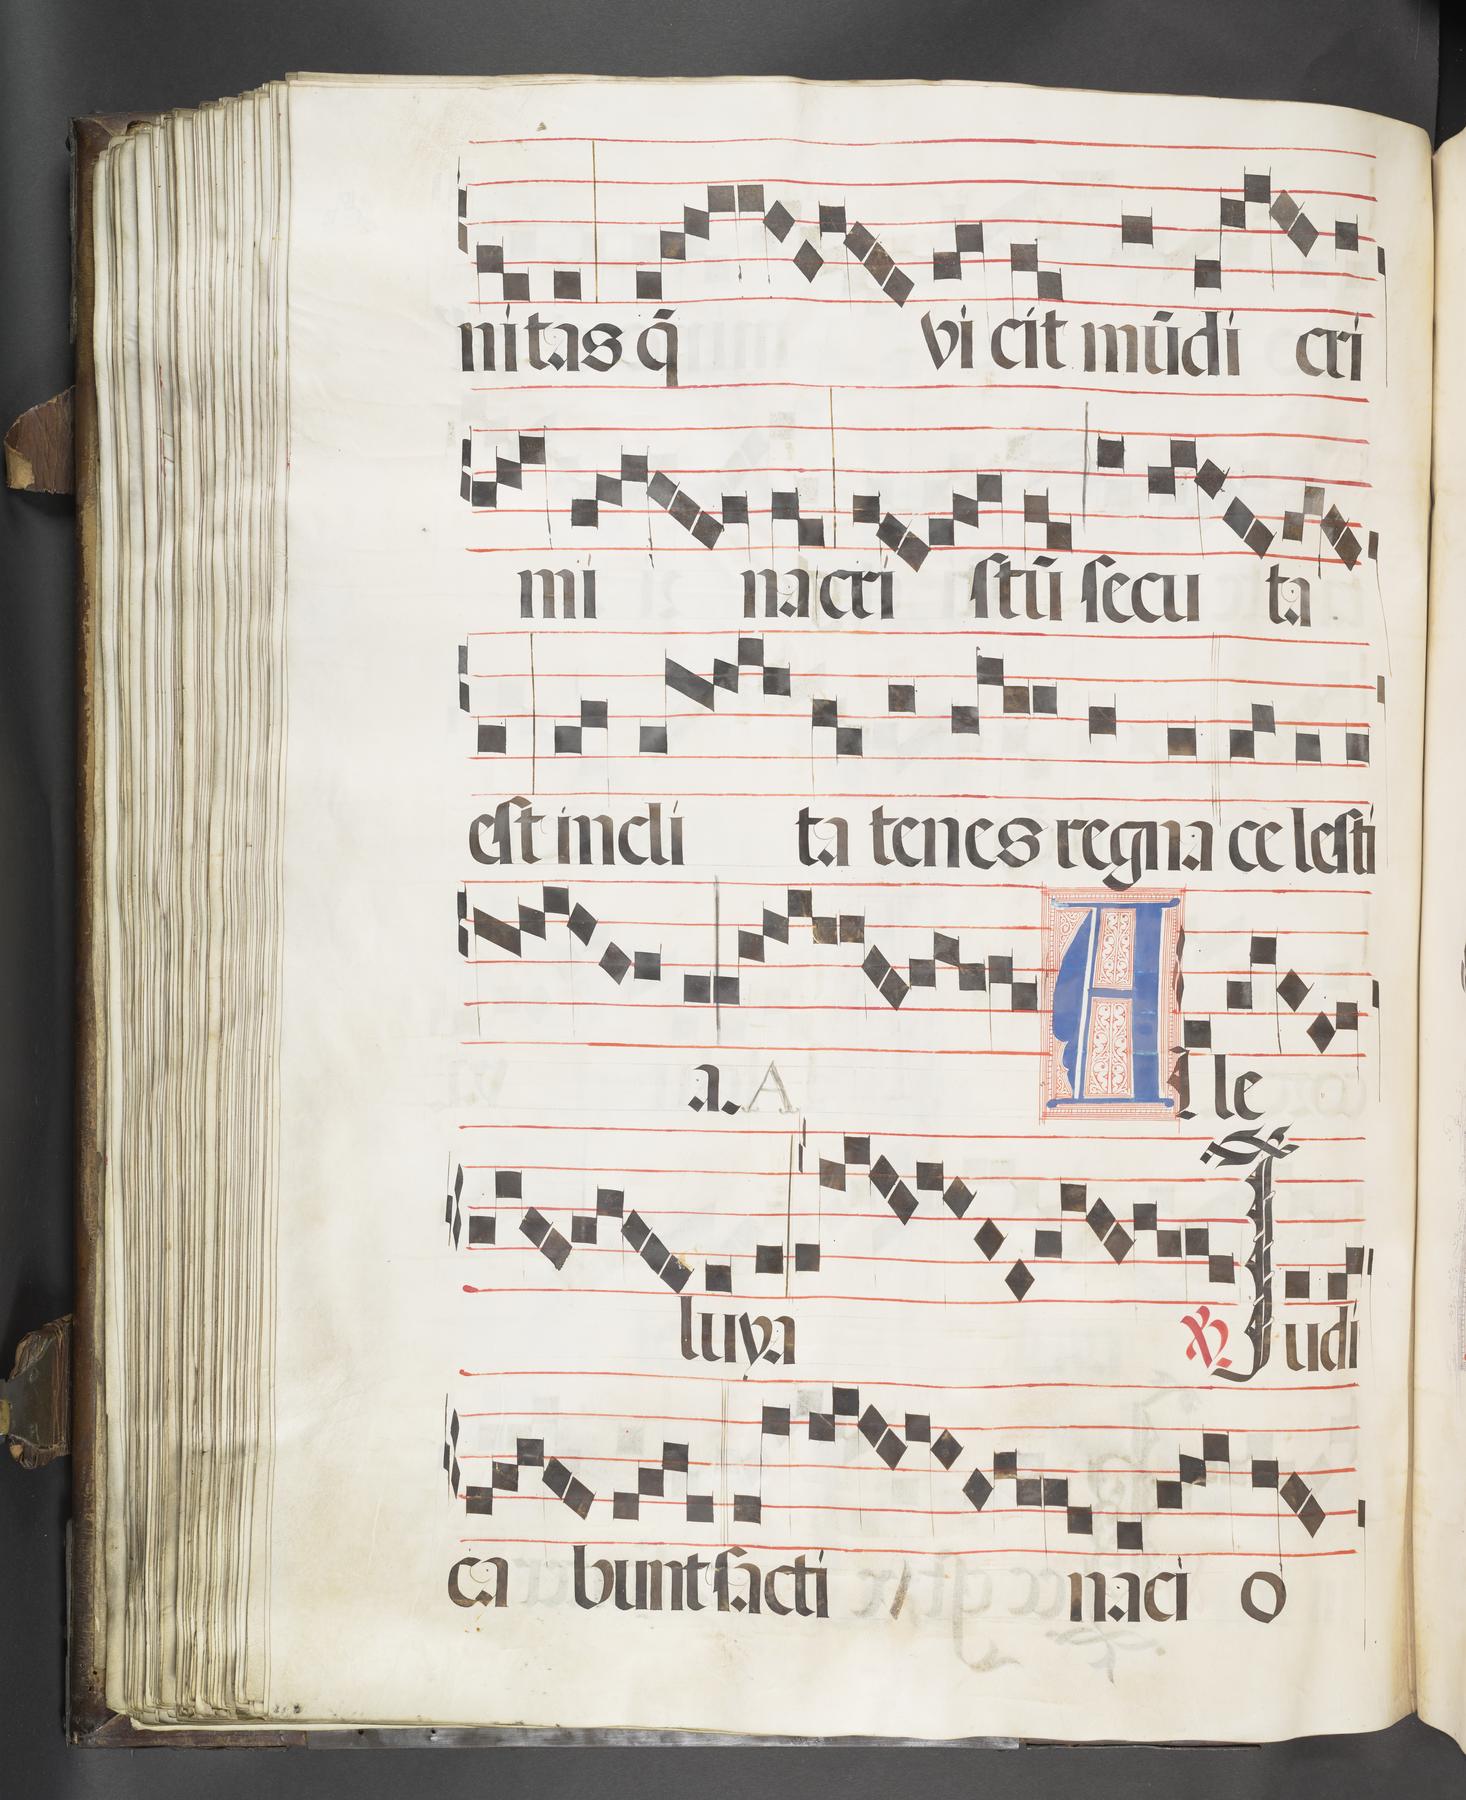 nitas q̄ vi cit mūdi cri
mi na cri stū secu ta
est incli ta tenes regna ce lesti
a. A A l le
luya ℣. Judi
ca bunt sācti naci o